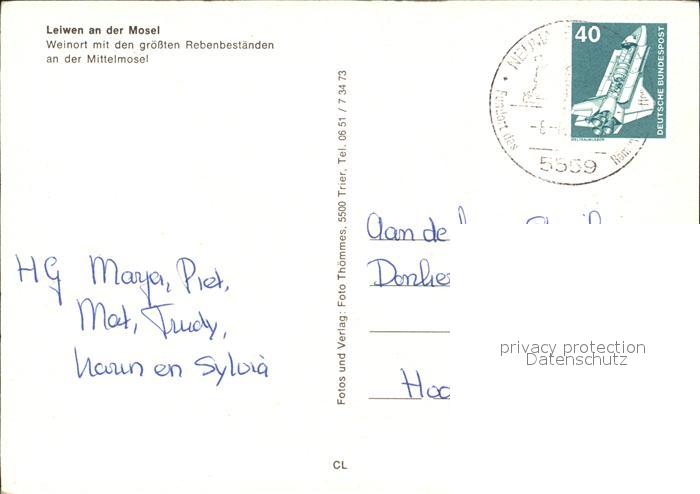 Leiwen an der Mosel
Weinort mit den größten Rebenbeständen
an der Mittelmosel
HG Marya, Piet,
Mat, Trudy,
Karin en Sylvia
Fotos und Verlag: Foto Thömmes, 5500 Trier, Tel. 06 51 / 7 34 73
CL
40
DEUTSCHE BUNDESPOST
WELTRAUMLABOR
Fundort des
5559
Aan de
privacy protection
Datenschutz